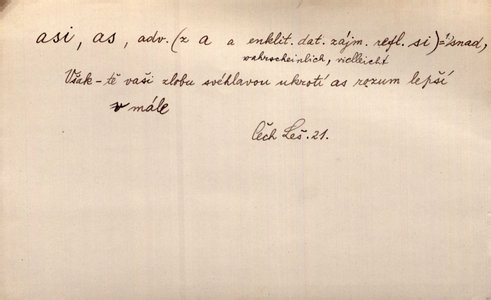 asi, as, adv. (z a a enklit. dat. zájm. refl. si) = snad,
wahrscheinlich, vielleicht
Však-tě vaši zlobu svéhlavou ukrotí as rozum lepší
v mále
Čech Leš. 21.